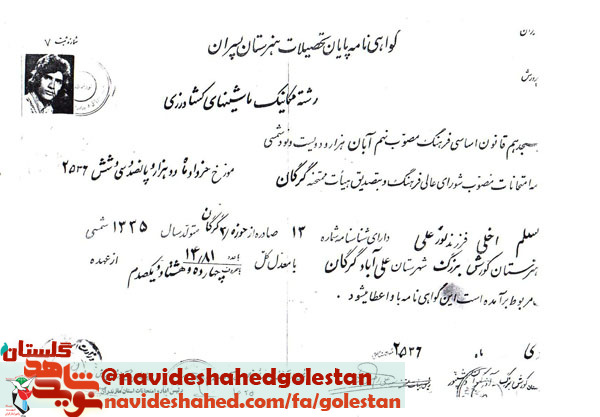 یران
پرورش
شماره ثبت ۷
گواهی نامه پایان تحصیلات هنرستان پسران
رشته مکانیک ماشینهای کشاورزی
هجدهم قانون اساسی فرهنگ مصوب نهم آبان هزار و دویست و نود شمسی
امتحانات مصوب شورای عالی فرهنگ و بتصدیق هیأت ممتحنه گرگان مورخ خرداد ماه دو هزار و پانصد و سی و شش ۲۵۳۶
اخلی فرزند نوزعلی دارای شناسنامه شماره ۱۳ صادره از حوزه ۳ گرگان متولد سال ۱۳۳۵ شمسی
هنرستان کورش بزرگ شهرستان علی آباد گرگان با معدل کل ۱۴/۸۱ چهارده و هشتاد و یکصدم از عهده
مربوط برآمده است این گواهی نامه با و اعطا میشود .
۲۵۳۶
نوید شاهد گلستان
@navideshahedgolestan
navideshahed.com/fa/golestan